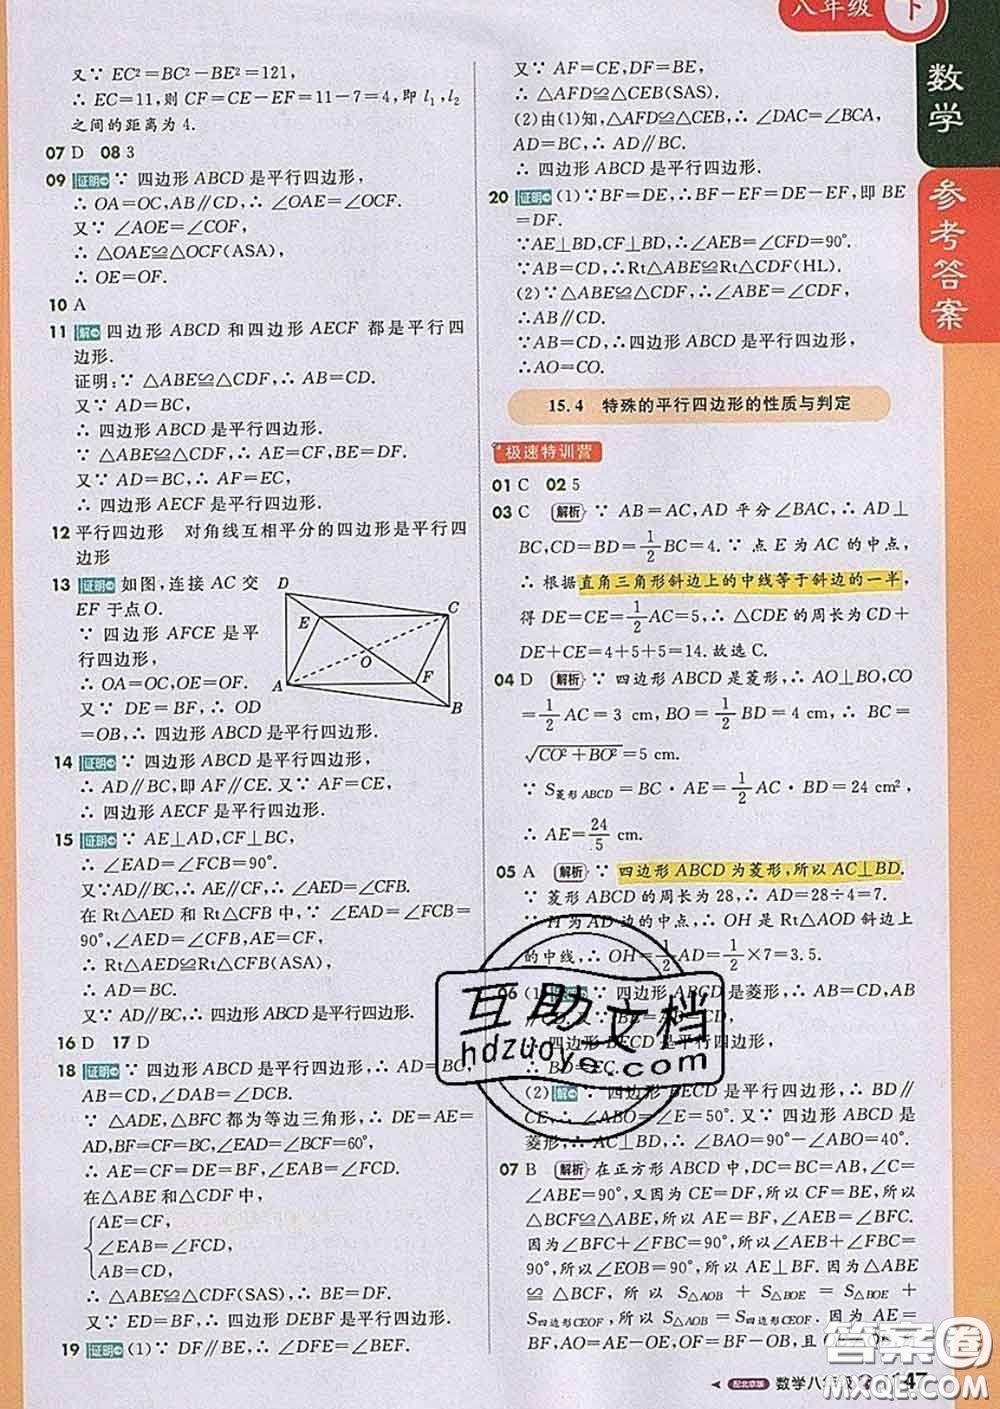 八年级 下
数学
参考答案
又∵ EC²=BC²-BE²=121,
∴ EC=11,则 CF=CE-EF=11-7=4,即 l₁,l₂
之间的距离为 4.
07 D 08 3
09 证明 ∵ 四边形 ABCD 是平行四边形,
∴ OA=OC,AB∥CD,∴ ∠OAE=∠OCF.
又∵ ∠AOE=∠COF,
∴ △OAE≌△OCF(ASA),
∴ OE=OF.
10 A
11 解 四边形 ABCD 和四边形 AECF 都是平行四
边形.
证明:∵ △ABE≌△CDF,∴ AB=CD.
又∵ AD=BC,
∴ 四边形 ABCD 是平行四边形.
∵ △ABE≌△CDF,∴ AE=CF,BE=DF.
又∵ AD=BC,∴ AF=EC,
∴ 四边形 AECF 是平行四边形.
12 平行四边形 对角线互相平分的四边形是平行四
边形
13 证明 如图,连接 AC 交
EF 于点O.
∵ 四边形 AFCE 是平
行四边形,
∴ OA=OC,OE=OF.
又∵ DE=BF,∴ OD
=OB,∴ 四边形 ABCD 是平行四边形.
D
E
C
O
A
F
B
14 证明 ∵ 四边形 ABCD 是平行四边形,
∴ AD∥BC,即 AF∥CE.又∵ AF=CE,
∴ 四边形 AECF 是平行四边形.
15 证明 ∵ AE⊥AD,CF⊥BC,
∴ ∠EAD=∠FCB=90°.
又∵AD∥BC,∴ ∠ADE=∠CBF.
在 Rt△AED 和 Rt△CFB 中,∵ ∠EAD=∠FCB=
90°,∠AED=∠CFB,AE=CF,
∴ Rt△AED≌Rt△CFB(ASA),
∴ AD=BC.
又∵ AD∥BC,∴ 四边形 ABCD 是平行四边形.
16 D 17 D
18 证明 ∵ 四边形 ABCD 是平行四边形,∴ AD=BC,
AB=CD,∠DAB=∠DCB.
∵ △ADE,△BFC 都为等边三角形,∴ DE=AE=
AD,BF=CF=BC,∠DAE=∠BCF=60°,
∴ AE=CF=DE=BF,∠EAB=∠FCD.
在△ABE 和△CDF 中,
AE=CF,
∠EAB=∠FCD,
AB=CD,
∴ △ABE≌△CDF(SAS),∴ BE=DF.
又∵ ED=BF,∴ 四边形 DEBF 是平行四边形.
19 证明 (1)∵ DF∥BE,∴ ∠DFE=∠BEF.
又∵ AF=CE,DF=BE,
∴ △AFD≌△CEB(SAS).
(2)由(1)知,△AFD≌△CEB,∴ ∠DAC=∠BCA,
AD=BC,∴ AD∥BC.
∴ 四边形 ABCD 是平行四边形.
20 证明 (1)∵BF=DE,∴BF-EF=DE-EF,即 BE
=DF.
∵AE⊥BD,CF⊥BD,∴∠AEB=∠CFD=90°.
∵AB=CD,∴Rt△ABE≌Rt△CDF(HL).
(2)∵△ABE≌△CDF,∴∠ABE=∠CDF,
∴AB∥CD.
∵AB=CD,∴四边形 ABCD 是平行四边形,
∴AO=CO.
15.4 特殊的平行四边形的性质与判定
极速特训营
01 C 02 5
03 C 解析 ∵ AB=AC,AD 平分∠BAC,∴ AD⊥
BC,CD=BD=1/2BC=4.∵ 点 E 为 AC 的中点,
∴ 根据直角三角形斜边上的中线等于斜边的一半,
得 DE=CE=1/2AC=5,∴ △CDE 的周长为 CD+
DE+CE=4+5+5=14.故选 C.
04 D 解析 ∵ 四边形 ABCD 是菱形,∴ AO⊥BO,CO
=1/2AC=3 cm,BO=1/2BD=4 cm,∴ BC=
√(CO²+BO²)=5 cm.
∵ S菱形ABCD=BC·AE=1/2AC×BD=24 cm²,
∴ AE=24/5 cm.
05 A 解析 ∵ 四边形 ABCD 为菱形,所以 AC⊥BD.
∵ 菱形 ABCD 的周长为 28,∴ AD=28÷4=7.
∵ H 为 AD 边的中点,∴ OH 是 Rt△AOD 斜边上
的中线,∴ OH=1/2AD=1/2×7=3.5.
06 (1) 证明 ∵ 四边形 ABCD 是菱形,∴ AB=CD,AB
∥CD.
∵ 四边形 BECD 是平行四边形,
∴ BD=EC.
(2) 解 ∵ 四边形 BECD 是平行四边形,∴ BD∥
CE,∴ ∠ABO=∠E=50°.又∵ 四边形 ABCD 是
菱形,∴ AC⊥BD,∴ ∠BAO=90°-∠ABO=40°.
07 B 解析 在正方形 ABCD 中,DC=BC=AB,∠C=
∠ABE=90°,又因为 CE=DF,所以 CF=BE,所以
△BCF≌△ABE,所以 AE=BF,∠AEB=∠BFC.
因为∠BFC+∠FBC=90°,所以∠AEB+∠FBC=
90°,所以∠EOB=90°,所以 AE⊥BF.因为△ABE
≌△BCF,所以 S△AOB+S△BOE=S△BOE+
S四边形CEOF,所以 S△AOB=S四边形CEOF.因为 AE=
BF,AO=AE-OE,OF=BF-OB,且 OE
配北京版 数学八年级 下 147
互助文档
hdzuoye.com
答案圈
MXQE.COM